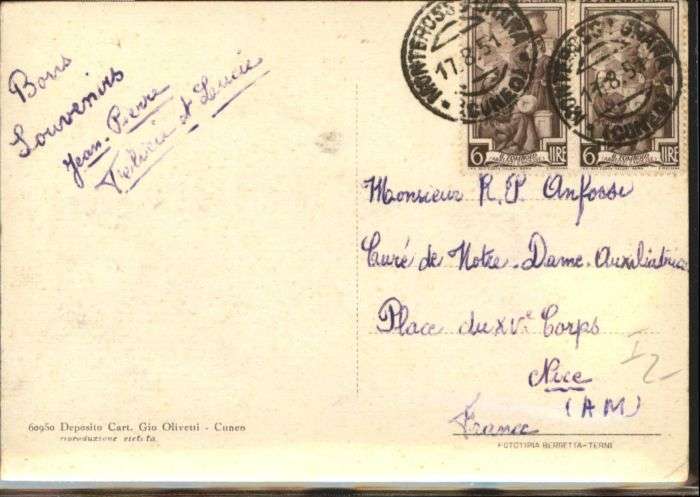 Bons
Souvenirs
Jean-Pierre
et Lucie
MONTEROSSO GRANA
17.8.51
(CUNEO)
MONTEROSSO GRANA
17.8.51
(CUNEO)
6 LIRE
6 LIRE
Monsieur R. P. Anfossi
Curé de Notre-Dame-Auxiliatrice
Place du XVe Corps
Nice
(AM)
France
60950 Deposito Cart. Gio Olivetti - Cuneo
riproduzione vietata
FOTOTIPIA BERRETTA-TERNI